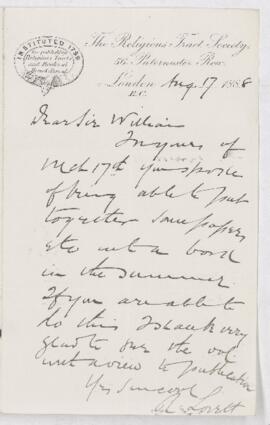 INSTITUTED 1799
The Religious Tract Society,
56, Paternoster Row,
London Aug. 17 1888
E.C.
Dear Sir William
In yours of
Mch 17th you spoke
of being able to put
together some papers
etc into a book
in the summer.
If you are able to
do this I shall be very
glad to see the vol
with a view to publication
Yrs sincerely
Lovett